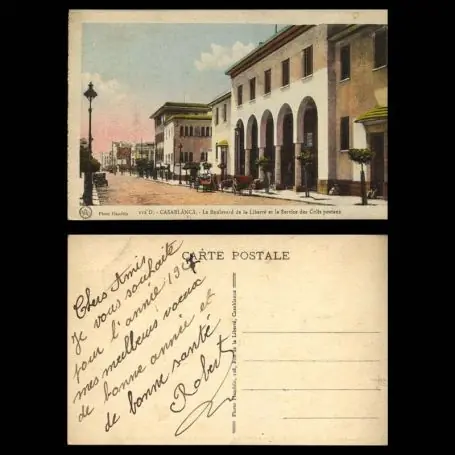 Photo Flandrin
CASABLANCA. - Le Boulevard de la Liberté et le Service des Colis postaux
CARTE POSTALE
Chers Amis
Je vous souhaite
pour l'année 19
mes meilleurs vœux
de bonne année et
de bonne santé
Robert
Photo Flandrin, Rue de la Liberté, Casablanca